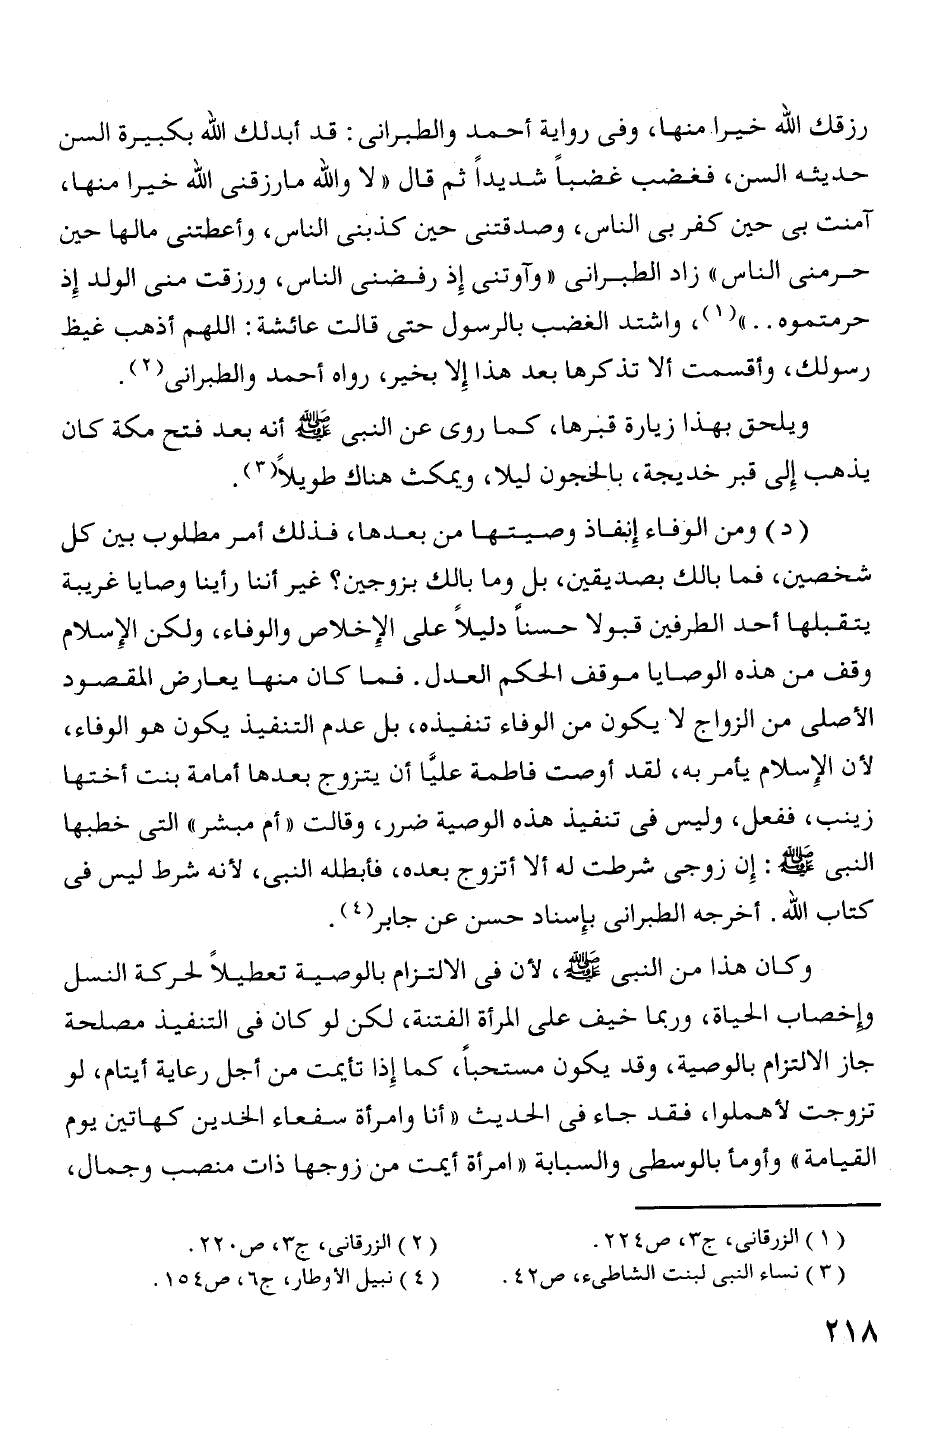 رزقك الله خيرا منها، وفى رواية أحمد والطبرانى: قد أبدلك الله بكبيرة السن
حديثه السن، فغضب غضباً شديداً ثم قال «لا والله مارزقنى الله خيرا منها،
آمنت بى حين كفر بى الناس، وصدقتنى حين كذبنى الناس، وأعطتنى مالها حين
حرمنى الناس» زاد الطبرانى «وآوتنى إذ رفضنى الناس، ورزقت منى الولد إذ
حرمتموه..»(١)، واشتد الغضب بالرسول حتى قالت عائشة: اللهم أذهب غيظ
رسولك، وأقسمت ألا تذكرها بعد هذا إلا بخير، رواه أحمد والطبرانى(٢).
ويلحق بهذا زيارة قبرها، كما روى عن النبى ﷺ أنه بعد فتح مكة كان
يذهب إلى قبر خديجة، بالخجون ليلا، ويمكث هناك طويلاً(٣).
(د) ومن الوفاء إنفاذ وصيتها من بعدها، فذلك أمر مطلوب بين كل
شخصين، فما بالك بصديقين، بل وما بالك بزوجين؟ غير أننا رأينا وصايا غريبة
يتقبلها أحد الطرفين قبولا حسناً دليلاً على الإخلاص والوفاء، ولكن الإسلام
وقف من هذه الوصايا موقف الحكم العدل. فما كان منها يعارض المقصود
الأصلى من الزواج لا يكون من الوفاء تنفيذه، بل عدم التنفيذ يكون هو الوفاء،
لأن الإسلام يأمر به، لقد أوصت فاطمة عليًّا أن يتزوج بعدها أمامة بنت أختها
زينب، ففعل، وليس فى تنفيذ هذه الوصية ضرر، وقالت «أم مبشر» التى خطبها
النبى ﷺ: إن زوجى شرطت له ألا أتزوج بعده، فأبطله النبى، لأنه شرط ليس فى
كتاب الله. أخرجه الطبرانى بإسناد حسن عن جابر(٤).
وكان هذا من النبى ﷺ، لأن فى الالتزام بالوصية تعطيلاً لحركة النسل
وإخصاب الحياة، وربما خيف على المرأة الفتنة، لكن لو كان فى التنفيذ مصلحة
جاز الالتزام بالوصية، وقد يكون مستحباً، كما إذا تأيمت من أجل رعاية أيتام، لو
تزوجت لأهملوا، فقد جاء فى الحديث «أنا وامرأة سفعاء الخدين كهاتين يوم
القيامة» وأومأ بالوسطى والسبابة «امرأة أيمت من زوجها ذات منصب وجمال،
(١) الزرقانى، ج٣، ص٢٢٤. (٢) الزرقانى، ج٣، ص٢٢٠.
(٣) نساء النبى لبنت الشاطىء، ص٤٢. (٤) نبيل الأوطار، ج٦، ص١٥٤.
٢١٨